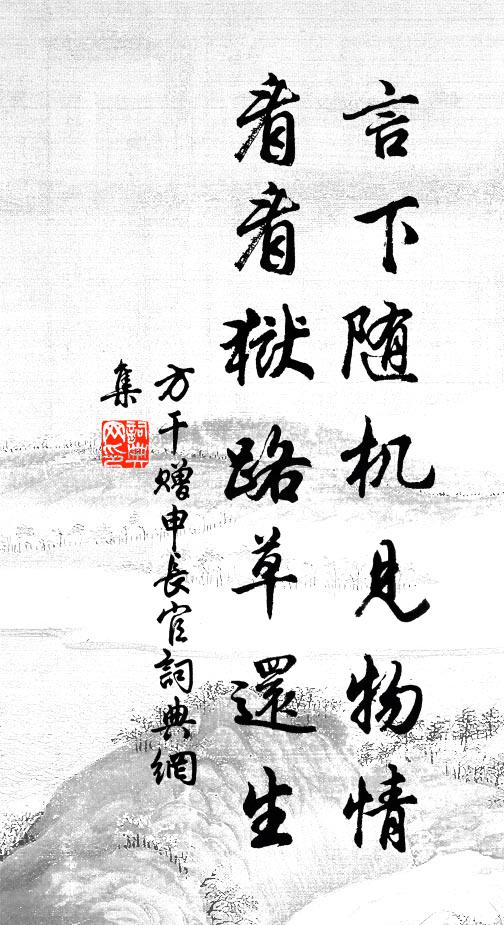 言下随机見物情
看看獄路草還生
方干贈申長官詞典網
集
詞典網